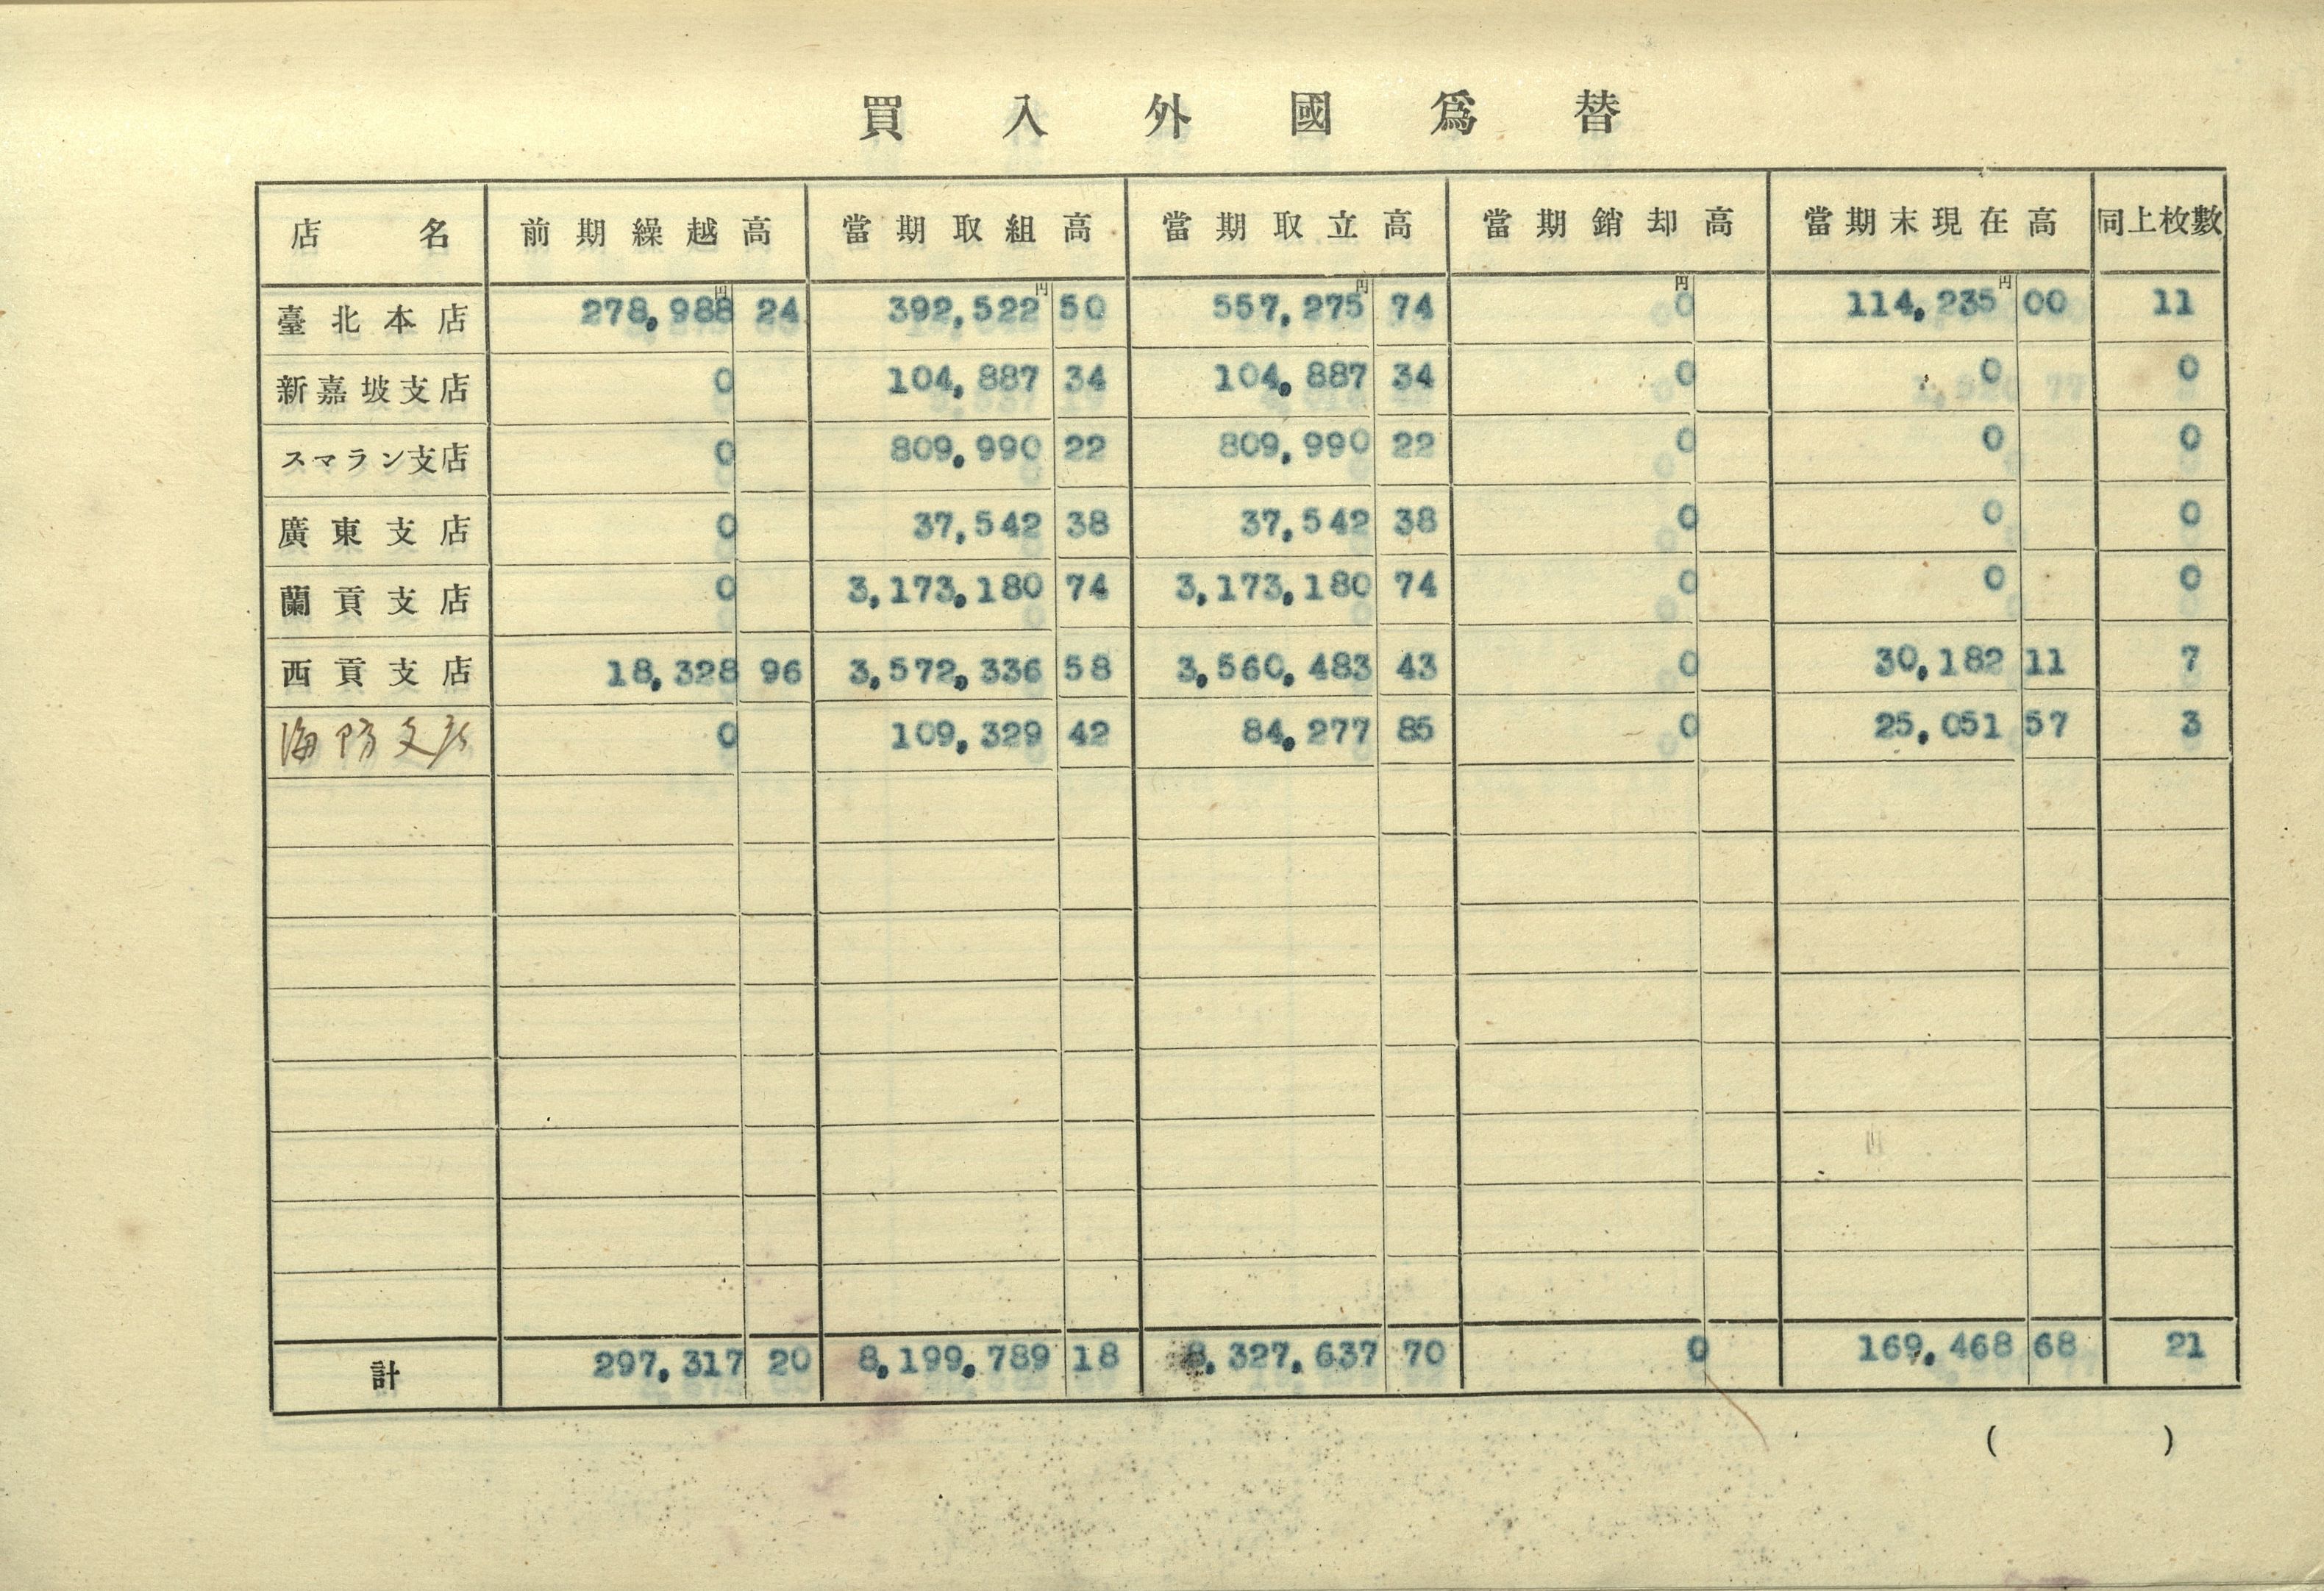 買入外國爲替
店名 前期繰越高 當期取組高 當期取立高 當期銷却高 當期末現在高 同上枚數
円 円 円 円 円
臺北本店 278,988 24 392,522 50 557,275 74 0 114,235 00 11
新嘉坡支店 0 104,887 34 104,887 34 0 0 0
スマラン支店 0 809,990 22 809,990 22 0 0 0
廣東支店 0 37,542 38 37,542 38 0 0 0
蘭貢支店 0 3,173,180 74 3,173,180 74 0 0 0
西貢支店 18,328 96 3,572,336 58 3,560,483 43 0 30,182 11 7
海防支店 0 109,329 42 84,277 85 0 25,051 57 3
計 297,317 20 8,199,789 18 8,327,637 70 0 169,468 68 21
( )